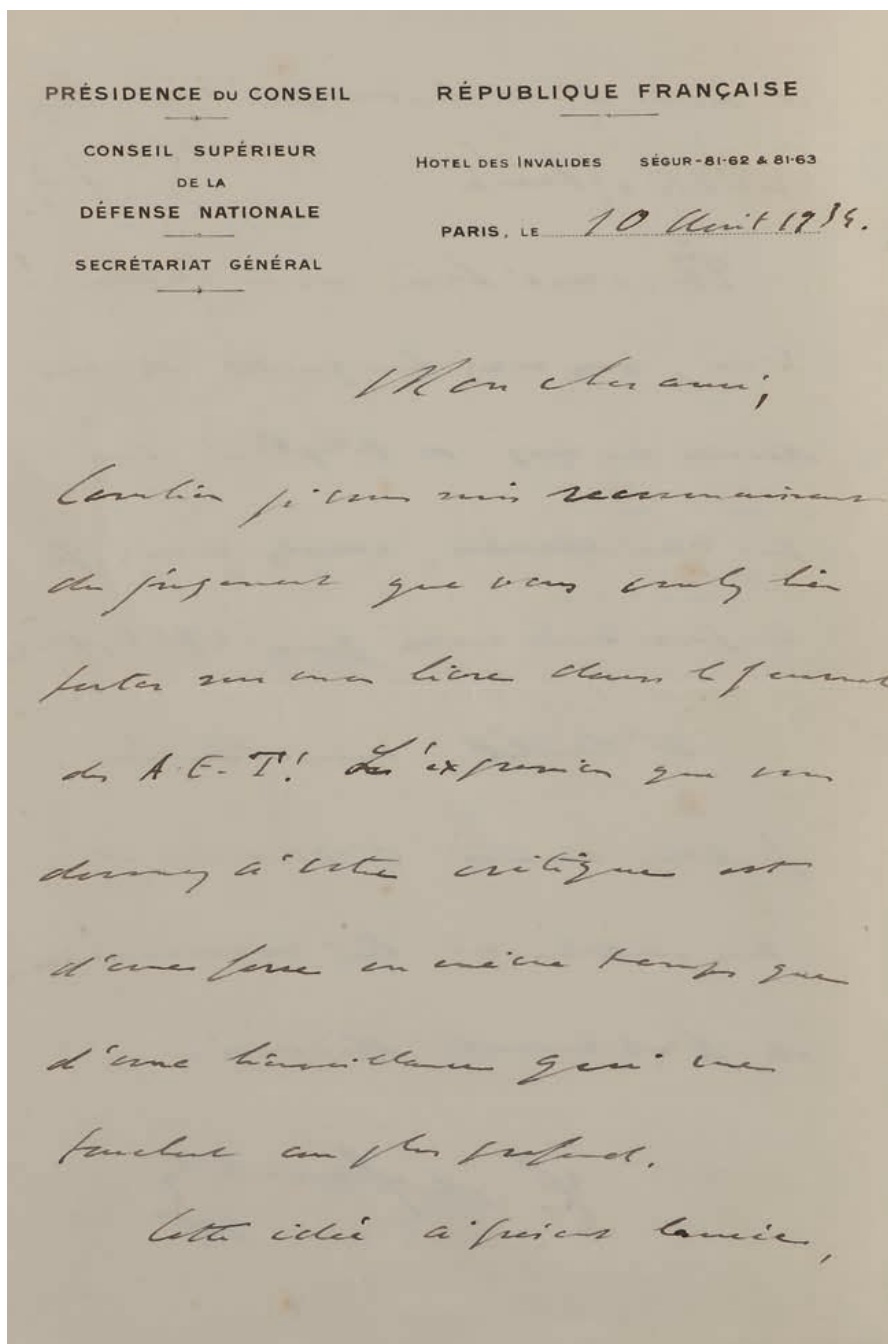 PRÉSIDENCE DU CONSEIL
CONSEIL SUPÉRIEUR
DE LA
DÉFENSE NATIONALE
SECRÉTARIAT GÉNÉRAL
RÉPUBLIQUE FRANÇAISE
HOTEL DES INVALIDES SÉGUR-81-62 & 81-63
PARIS, LE 10 Août 1934.
Mon cher ami,
Combien je vous suis reconnaissant
du jugement que vous voulez bien
porter sur mon livre dans le journal
des A.E.T! L'expression que vous
donnez à votre critique est
d'une force en même temps que
d'une bienveillance qui me
touchent au plus profond.
Cette idée à présent lancée,